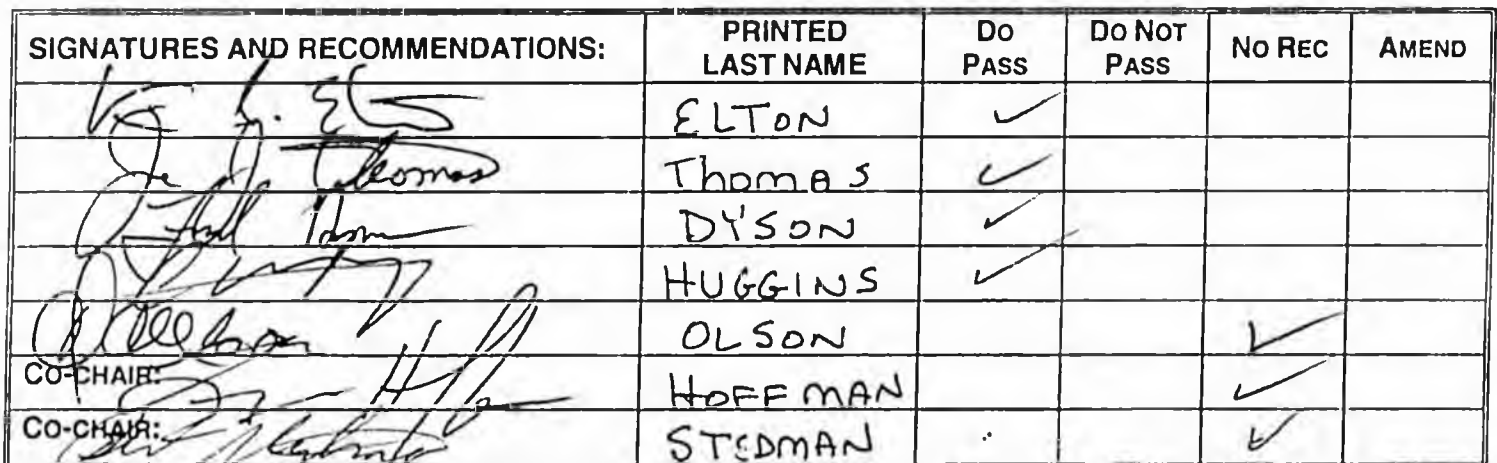 SIGNATURES AND RECOMMENDATIONS: PRINTED LAST NAME DO PASS DO NOT PASS NO REC AMEND
ELTON ✓
Thomas Thomas ✓
DYSON ✓
HUGGINS ✓
OLSON ✓
CO-CHAIR: HOFFMAN ✓
CO-CHAIR: STEDMAN ✓